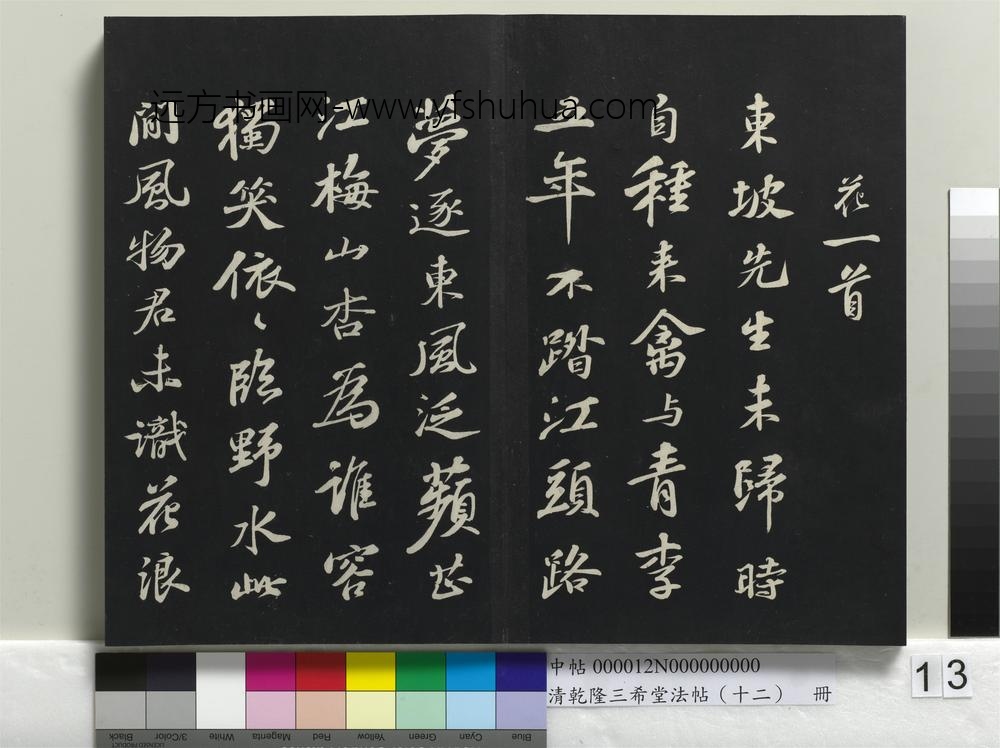 花一首
東坡先生未歸時
自種来禽与青李
五年不踏江頭路
夢逐東風泛蘋芷
江梅山杏為誰容
獨笑依〻臨野水此
間風物君未識花浪
远方书画网-www.yfshuhua.com
中帖 000012N000000000
清乾隆三希堂法帖（十二） 冊
13
Black
3/Color
White
Magenta
Red
Yellow
Green
Cyan
Blue